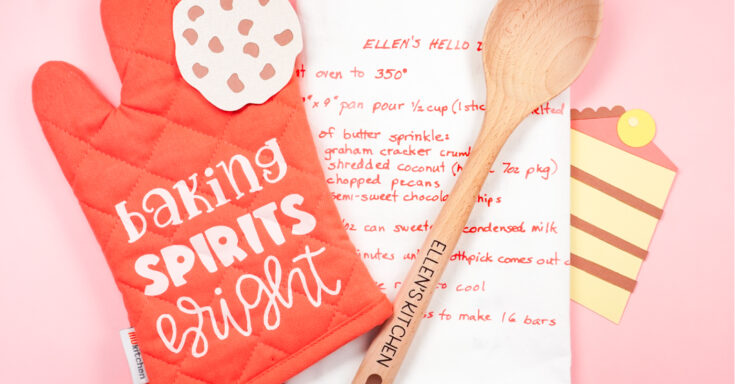 baking
SPIRITS
bright
kitchen
ELLEN'S HELLO
oven to 350°
9" pan pour 1/2 cup (1 stick melted
of butter sprinkle:
graham cracker crumb
shredded coconut 7oz pkg)
chopped pecans
semi-sweet chocolate chips
oz can sweete condensed milk
inutes until toothpick comes out
to cool
to make 16 bars
ELLEN'S KITCHEN